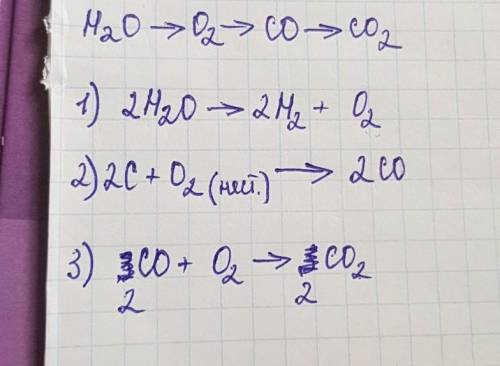 H₂O → O₂ → CO → CO₂
1) 2H₂O → 2H₂ + O₂
2) 2C + O₂ (нед.) → 2CO
3) 2CO + O₂ → 2CO₂